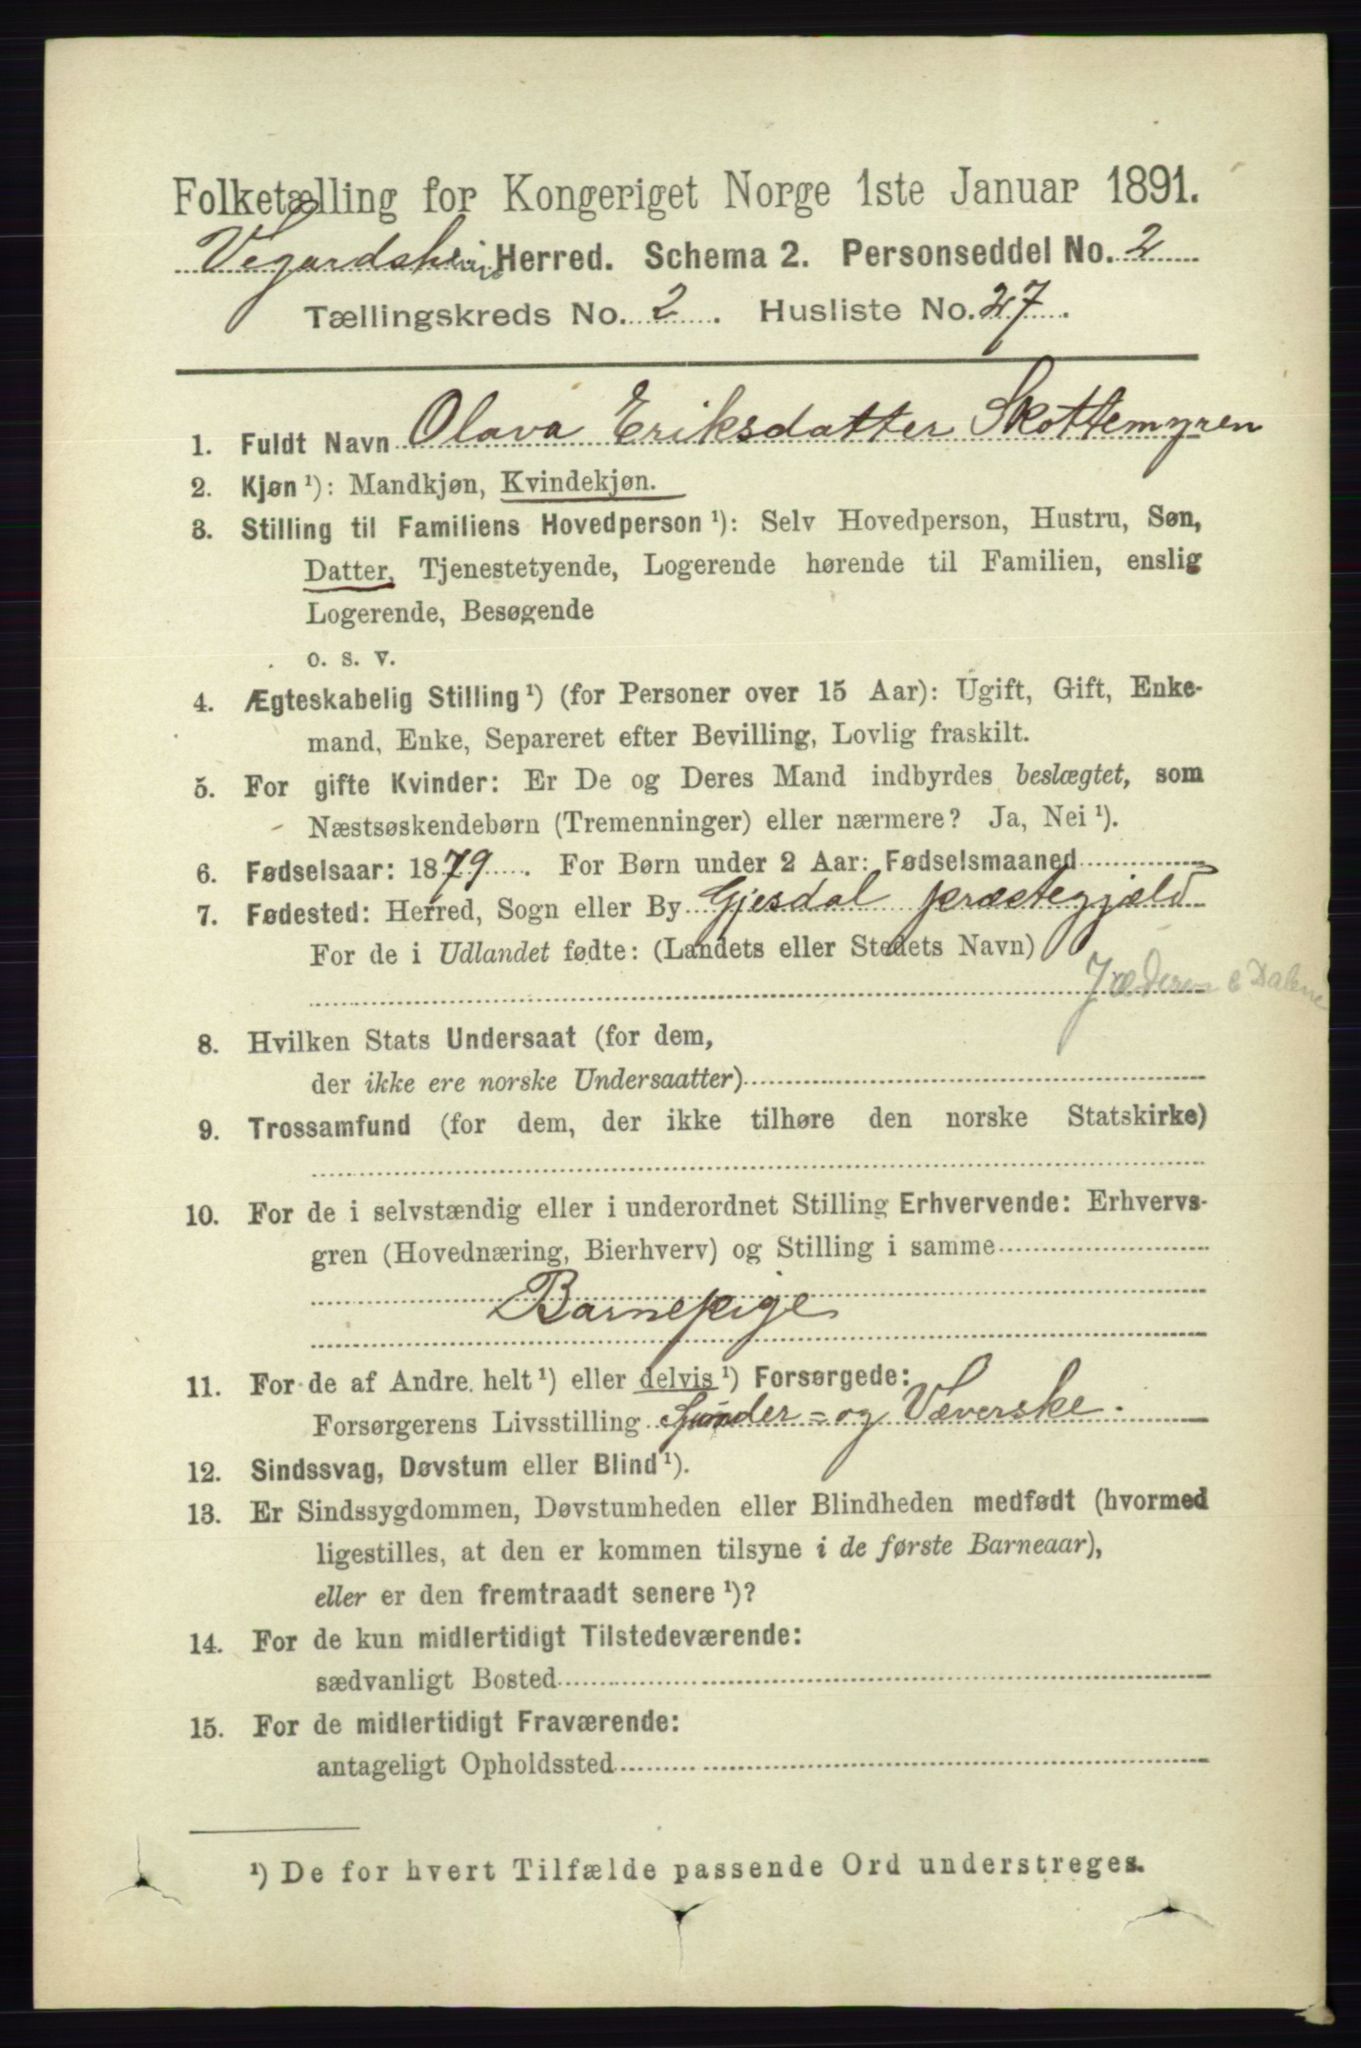 Folketælling for Kongeriget Norge 1ste Januar 1891.
Vegardsheis Herred. Schema 2. Personseddel No. 2
Tællingskreds No. 2. Husliste No. 27.
1. Fuldt Navn Olava Eriksdatter Skottemyren
2. Kjøn ¹): Mandkjøn, Kvindekjøn.
3. Stilling til Familiens Hovedperson ¹): Selv Hovedperson, Hustru, Søn,
Datter, Tjenestetyende, Logerende hørende til Familien, enslig
Logerende, Besøgende
o. s. v.
4. Ægteskabelig Stilling ¹) (for Personer over 15 Aar): Ugift, Gift, Enke-
mand, Enke, Separeret efter Bevilling, Lovlig fraskilt.
5. For gifte Kvinder: Er De og Deres Mand indbyrdes beslægtet, som
Næstsøskendebørn (Tremenninger) eller nærmere? Ja, Nei ¹).
6. Fødselsaar: 1879. For Børn under 2 Aar: Fødselsmaaned
7. Fødested: Herred, Sogn eller By Gjesdal præstegjæld
For de i Udlandet fødte: (Landets eller Stedets Navn)
Jæderen & Dalene
8. Hvilken Stats Undersaat (for dem,
der ikke ere norske Undersaatter)
9. Trossamfund (for dem, der ikke tilhøre den norske Statskirke)
10. For de i selvstændig eller i underordnet Stilling Erhvervende: Erhvervs-
gren (Hovednæring, Bierhverv) og Stilling i samme
Barnepige
11. For de af Andre helt ¹) eller delvis ¹) Forsørgede:
Forsørgerens Livsstilling Spinder- og Væverske.
12. Sindssvag, Døvstum eller Blind ¹).
13. Er Sindssygdommen, Døvstumheden eller Blindheden medfødt (hvormed
ligestilles, at den er kommen tilsyne i de første Barneaar),
eller er den fremtraadt senere ¹)?
14. For de kun midlertidigt Tilstedeværende:
sædvanligt Bosted
15. For de midlertidigt Fraværende:
antageligt Opholdssted
¹) De for hvert Tilfælde passende Ord understreges.